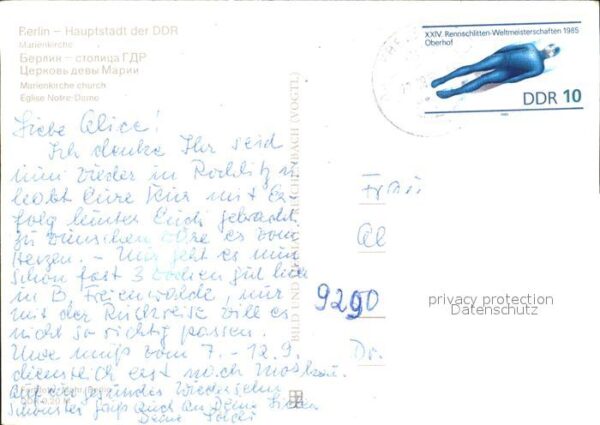 Berlin – Hauptstadt der DDR
Marienkirche
Берлин – столица ГДР
Церковь девы Марии
Marienkirche church
Eglise Notre-Dame
XXIV. Rennschlitten-Weltmeisterschaften 1985
Oberhof
DDR 10
BILD UND REICHENBACH (VOGTL)
Liebe Alice!
Ich denke Ihr seid
nun wieder in Rochlitz u.
habt Eure Kur mit Er-
folg hinter Euch gebracht,
zu wünschen wäre es vom
Herzen. – Mir geht es nun
schon fast 3 Wochen gut hier
in B. Freienwalde, nur
mit der Rückreise will es
nicht so richtig passen.
Uwe muß vom 7. – 12.9.
dienstlich erst noch Moskau.
Auf ein gesundes Wiedersehn
Deine
Frau
Al
9290
Dr.
privacy protection
Datenschutz